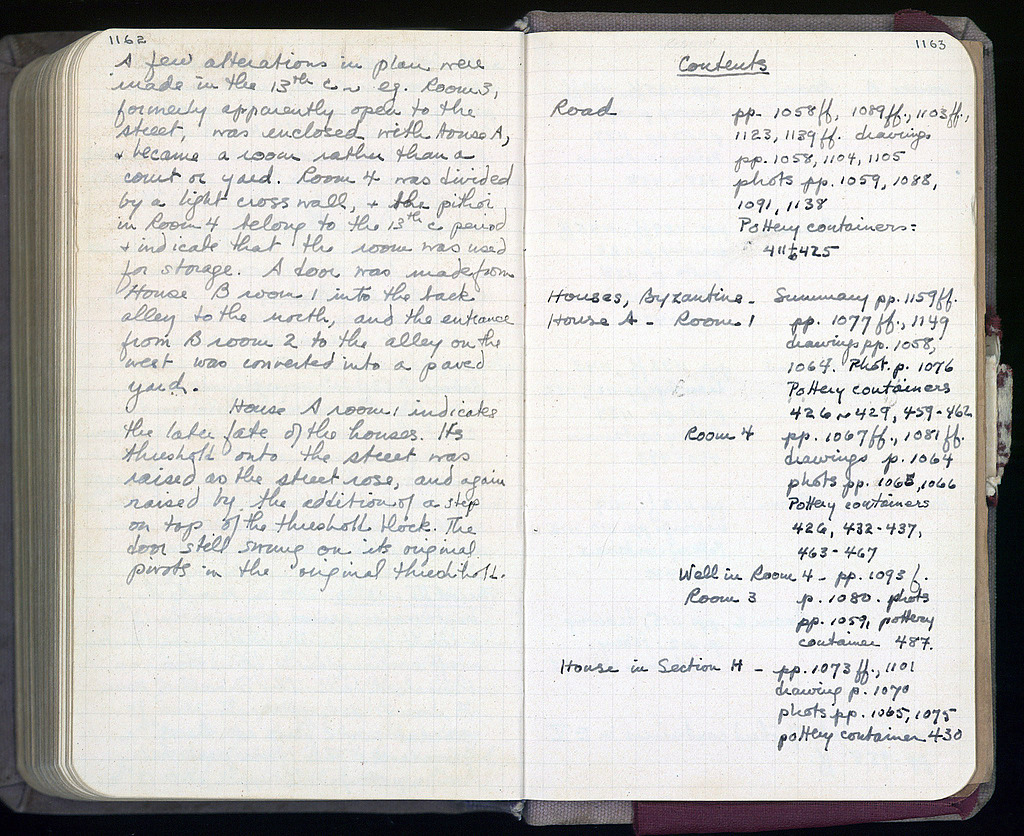 1162
A few alterations in plan were
made in the 13th c ~ eg. Room 3,
formerly apparently open to the
street, was enclosed with House A,
+ became a room rather than a
court or yard. Room 4 was divided
by a light cross wall, + the pithoi
in Room 4 belong to the 13th c period
+ indicate that the room was used
for storage. A door was made from
House B room 1 into the back
alley to the north, and the entrance
from B room 2 to the alley on the
west was converted into a paved
yard.
House A room 1 indicates
the later fate of the houses. Its
threshold onto the street was
raised as the street rose, and again
raised by the addition of a step
on top of the threshold block. The
door still swung on its original
pivots in the original threshhold.
1163
Contents
Road pp. 1058ff, 1089ff, 1103ff.,
1123, 1139ff. drawings
pp. 1058, 1104, 1105
phots pp. 1059, 1088,
1091, 1138
Pottery containers:
411 to 425
Houses, Byzantine - Summary pp. 1159ff.
House A - Room 1 pp. 1077ff., 1149
drawings pp. 1058,
1064. Phot. p. 1076
Pottery containers
426 ~ 429, 459-462
Room 4 pp. 1067ff., 1081ff.
drawings p. 1064
phots pp. 1063, 1066
Pottery containers
426, 432-437,
463-467
Well in Room 4 - pp. 1093f.
Room 3 p. 1080. phots
pp. 1059, pottery
container 487.
House in Section H - pp. 1073ff., 1101
drawing p. 1070
phots pp. 1065, 1075
pottery container 430